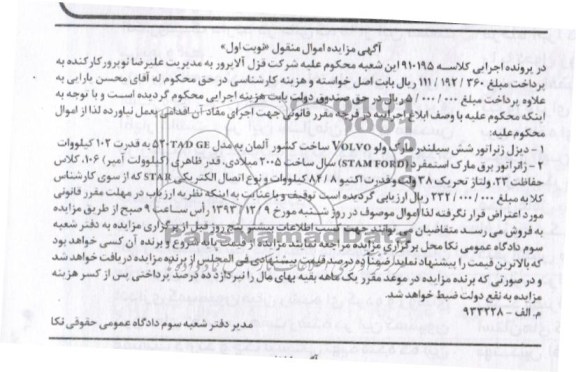 آگهی مزایده اموال منقول «نوبت اول»
در پرونده اجرایی کلاسه ۹۱۰۱۹۵ این شعبه محکوم علیه شرکت قزل آلاپرور به مدیریت علیرضا نوپرور کارکنده به
پرداخت مبلغ ۱۱۱/۱۹۲/۳۶۰ ریال بابت اصل خواسته و هزینه کارشناسی در حق محکوم له آقای محسن بارایی به
علاوه پرداخت مبلغ ۵/۰۰۰/۰۰۰ ریال در حق صندوق دولت بابت هزینه اجرایی محکوم گردیده است و با توجه به
اینکه محکوم علیه با وصف ابلاغ اجرائیه در فرجه مقرر قانونی جهت اجرای مفاد آن اقدامی بعمل نیاورده لذا از اموال
محکوم علیه:
۱ - دیزل ژنراتور شش سیلندر مارک ولو VOLVO ساخت کشور آلمان به مدل ۵۳۰TAD GE به قدرت ۱۰۲ کیلووات
۲ - ژانراتور برق مارک استمفرد (STAM FORD) سال ساخت ۲۰۰۵ میلادی، قدر ظاهری (کیلووات آمپر) ۱۰۶، کلاس
حفاظت ۲۳، ولتاژ تحریک ۳۸ ولت و قدرت اکتیو ۸۴/۸ کیلووات و نوع اتصال الکتریکی STAR که از سوی کارشناس
کلا به مبلغ ۲۳۲/۰۰۰/۰۰۰ ریال ارزیابی گردیده است توقیف و با عنایت به اینکه نظریه ارزیاب در مهلت مقرر قانونی
مورد اعتراض قرار نگرفته لذا اموال موصوف در روز شنبه مورخ ۱۳۹۳/۱۲/۹ رأس ساعت ۹ صبح از طریق مزایده
به فروش می رسد متقاضیان می توانند جهت کسب اطلاعات بیشتر پنج روز قبل از برگزاری مزایده به دفتر شعبه
سوم دادگاه عمومی نکا محل برگزاری مزایده مراجعه نمایند مزایده از قیمت پایه شروع و برنده آن کسی خواهد بود
که بالاترین قیمت را پیشنهاد نماید ضمناً ده درصد قیمت پیشنهادی فی المجلس از برنده مزایده دریافت خواهد شد
و در صورتی که برنده مزایده در موعد مقرر یک ماهه بقیه بهای مال را نپردازد ده درصد پرداختی پس از کسر هزینه
مزایده به نفع دولت ضبط خواهد شد.
م.الف - ۹۳۳۲۲۸
مدیر دفتر شعبه سوم دادگاه عمومی حقوقی نکا